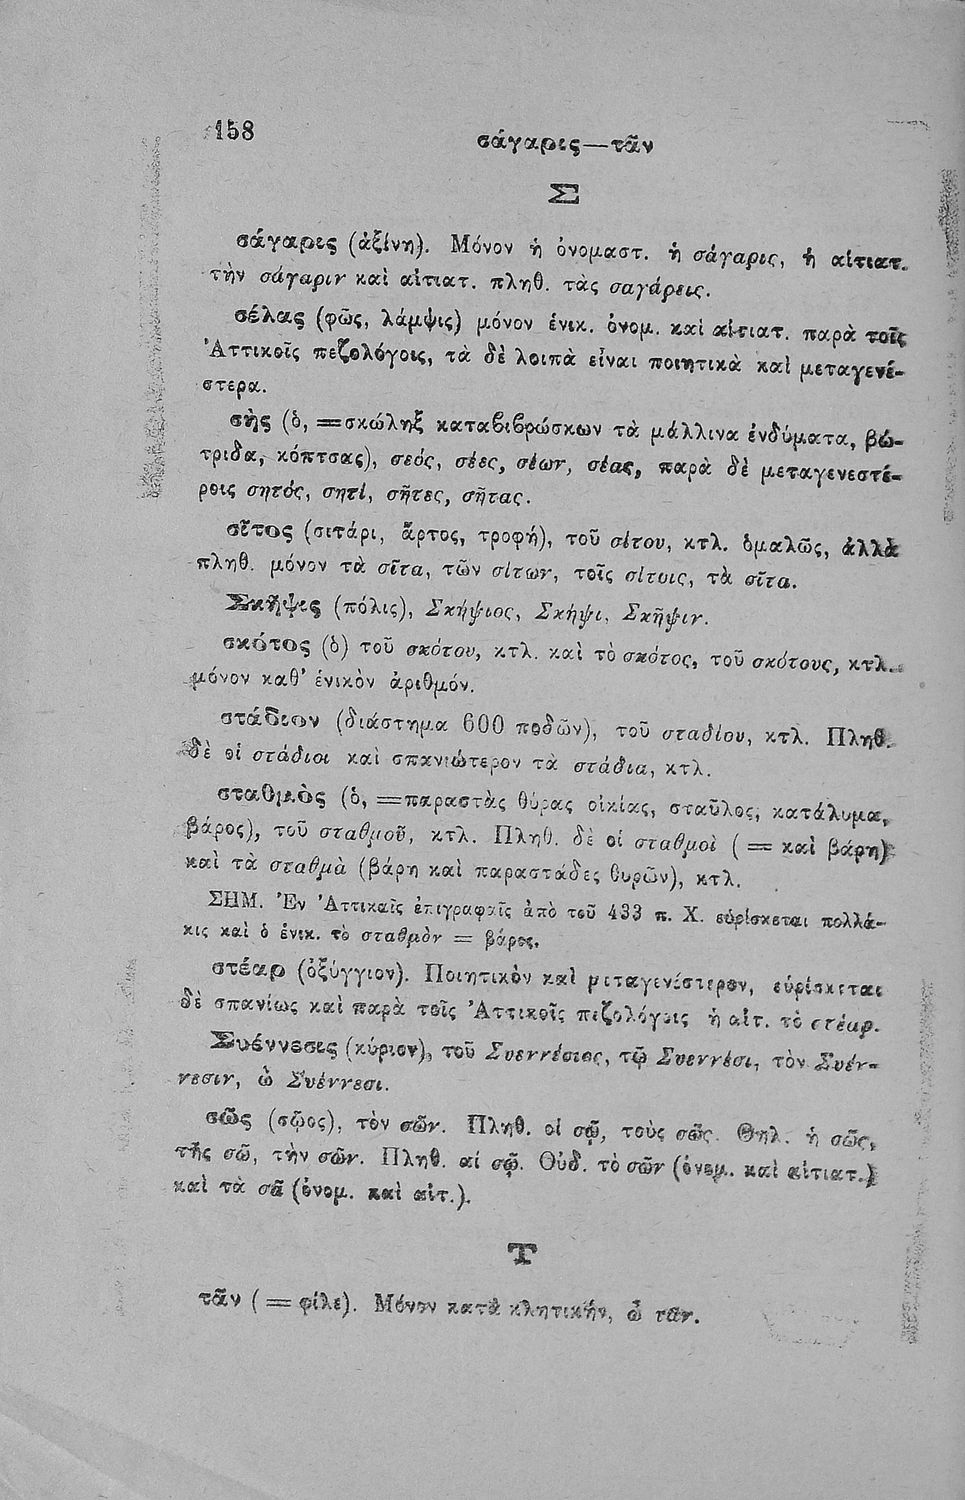 158
σάγαρις—τᾶν
Σ
σάγαρις (ἀξίνη). Μόνον ἡ ὀνομαστ. ἡ σάγαρις, ἡ αἰτιατ.
τὴν σάγαριν καὶ αἰτιατ. πληθ. τὰς σαγάρεις.
σέλας (φῶς, λάμψις) μόνον ἑνικ. ὀνομ. καὶ αἰτιατ. παρὰ τοῖς
Ἀττικοῖς πεζολόγοις, τὰ δὲ λοιπὰ εἶναι ποιητικὰ καὶ μεταγενέ-
στερα.
σὴς (ὁ, =σκώληξ καταβιβρώσκων τὰ μάλλινα ἐνδύματα, βώ-
τριδα, κόπτσας), σεός, σέες, σέων, σέας, παρὰ δὲ μεταγενεστέ-
ροις σητός, σητί, σῆτες, σῆτας.
σῖτος (σιτάρι, ἄρτος, τροφή), τοῦ σίτου, κτλ. ὁμαλῶς, ἀλλὰ
πληθ. μόνον τὰ σῖτα, τῶν σίτων, τοῖς σίτοις, τὰ σῖτα.
Σκῆψις (πόλις), Σκήψιος, Σκήψι, Σκῆψιν.
σκότος (ὁ) τοῦ σκότου, κτλ. καὶ τὸ σκότος, τοῦ σκότους, κτλ.
μόνον καθ' ἑνικὸν ἀριθμόν.
στάδιον (διάστημα 600 ποδῶν), τοῦ σταδίου, κτλ. Πληθ.
δὲ οἱ στάδιοι καὶ σπανιώτερον τὰ στάδια, κτλ.
σταθμὸς (ὁ, =παραστὰς θύρας οἰκίας, σταῦλος, κατάλυμα,
βάρος), τοῦ σταθμοῦ, κτλ. Πληθ. δὲ οἱ σταθμοὶ (= καὶ βάρη)
καὶ τὰ σταθμὰ (βάρη καὶ παραστάδες θυρῶν), κτλ.
ΣΗΜ. Ἐν Ἀττικαῖς ἐπιγραφαῖς ἀπὸ τοῦ 433 π. Χ. εὑρίσκεται πολλά-
κις καὶ ὁ ἑνικ. τὸ σταθμὸν = βάρος.
στέαρ (ὀξύγγιον). Ποιητικὸν καὶ μεταγενέστερον, εὑρίσκεται
δὲ σπανίως καὶ παρὰ τοῖς Ἀττικοῖς πεζολόγοις ἡ αἰτ. τὸ στέαρ.
Συέννεσις (κύριον), τοῦ Συεννέσιος, τῷ Συεννέσι, τὸν Συέν-
νεσιν, ὦ Συέννεσι.
σῶς (σῷος), τὸν σῶν. Πληθ. οἱ σῷ, τοὺς σῶς. Θηλ. ἡ σῶς,
τῆς σῶ, τὴν σῶν. Πληθ. αἱ σῷ. Οὐδ. τὸ σῶν (ὀνομ. καὶ αἰτιατ.)
καὶ τὰ σᾶ (ὀνομ. καὶ αἰτ.).
Τ
τᾶν (= φίλε). Μόνον κατὰ κλητικήν, ὦ ταν.